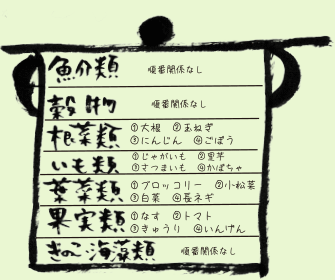 魚介類 順番関係なし
穀物 順番関係なし
根菜類 ①大根 ②玉ねぎ
③にんじん ④ごぼう
いも類 ①じゃがいも ②里芋
③さつまいも ④かぼちゃ
葉菜類 ①ブロッコリー ②小松菜
③白菜 ④長ネギ
果実類 ①なす ②トマト
③きゅうり ④いんげん
きのこ・海藻類 順番関係なし